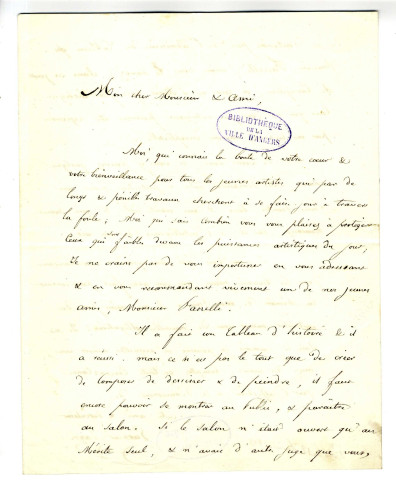 Mon cher Monsieur & ami,
BIBLIOTHÈQUE
DE LA
VILLE D'ANGERS
Moi, qui connais la bonté de votre cœur &
votre bienveillance pour tous les jeunes artistes qui par de
longs & pénibles travaux cherchent à se faire jour à travers
la foule, Moi qui sais combien vous vous plaisez à protéger
Ceux qui sont faibles devant les puissances artistiques du jour,
Je ne crains pas de vous importuner en vous adressant
& en vous recommandant vivement un de nos jeunes
amis, Monsieur
Il a fait un tableau d'histoire & il
a réussi. mais ce n'est pas le tout que de créer
de composer de dessiner & de peindre, il faut
encore pouvoir se montrer au public, & paraître
au salon. Si le salon n'était ouvert qu'au
Mérite seul, & n'avait d'autre juge que vous,